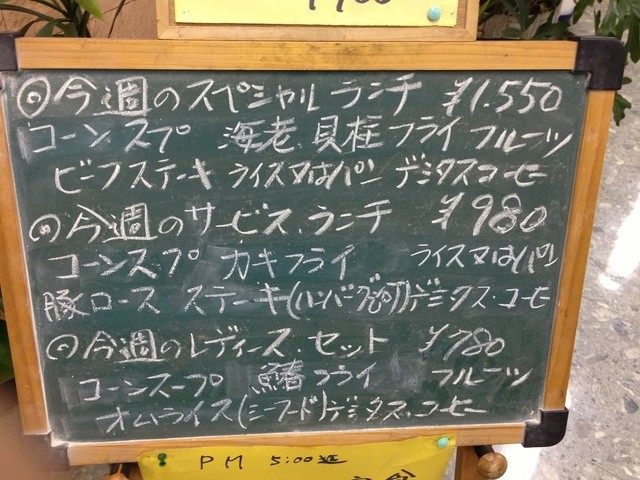 ◎今週のスペシャルランチ ¥1.550
コーンスプ 海老 貝柱フライ フルーツ
ビーフステーキ ライス又はパン デミタスコーヒー
◎今週のサービス.ランチ ¥980
コーンスプ カキフライ ライス又はパン
豚ロース ステーキ(ハンバーグ可)デミタス.コーヒ
◎今週のレディース.セット ¥780
コーンスープ 鰆フライ フルーツ
オムライス(シーフード)デミタス.コーヒー
PM 5:00迄